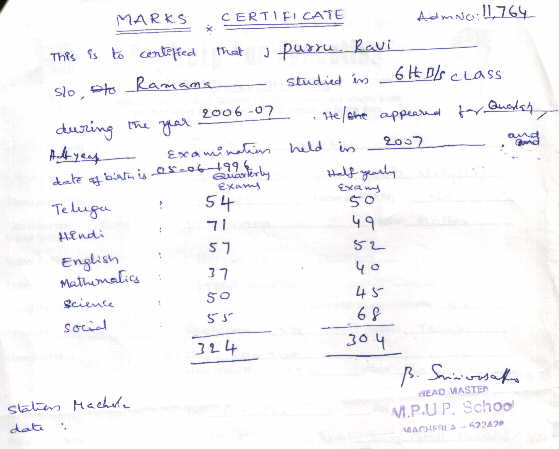 MARKS CERTIFICATE AdmNo: 11,764
This is to certified that J purru. Ravi
S/o, D/o Ramana studied in 6th D/s CLASS
during the year 2006-07. He/she appeared for Quarterly,
Half yearly Examination held in 2007, and
date of birth is 05-06-1996
Quarterly Exams Half yearly Exams
Telugu : 54 50
Hindi : 71 49
English : 57 52
Mathematics : 37 40
Science : 50 45
Social : 55 68
324 304
HEAD MASTER
M.P.U.P. School
Station
date :